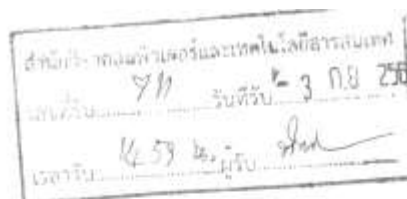 สำนักวิชาคอมพิวเตอร์และเทคโนโลยีสารสนเทศ
เลขที่รับ วันที่รับ - 3 ก.ย. 256
เวลารับ 14.59 น. ผู้รับ